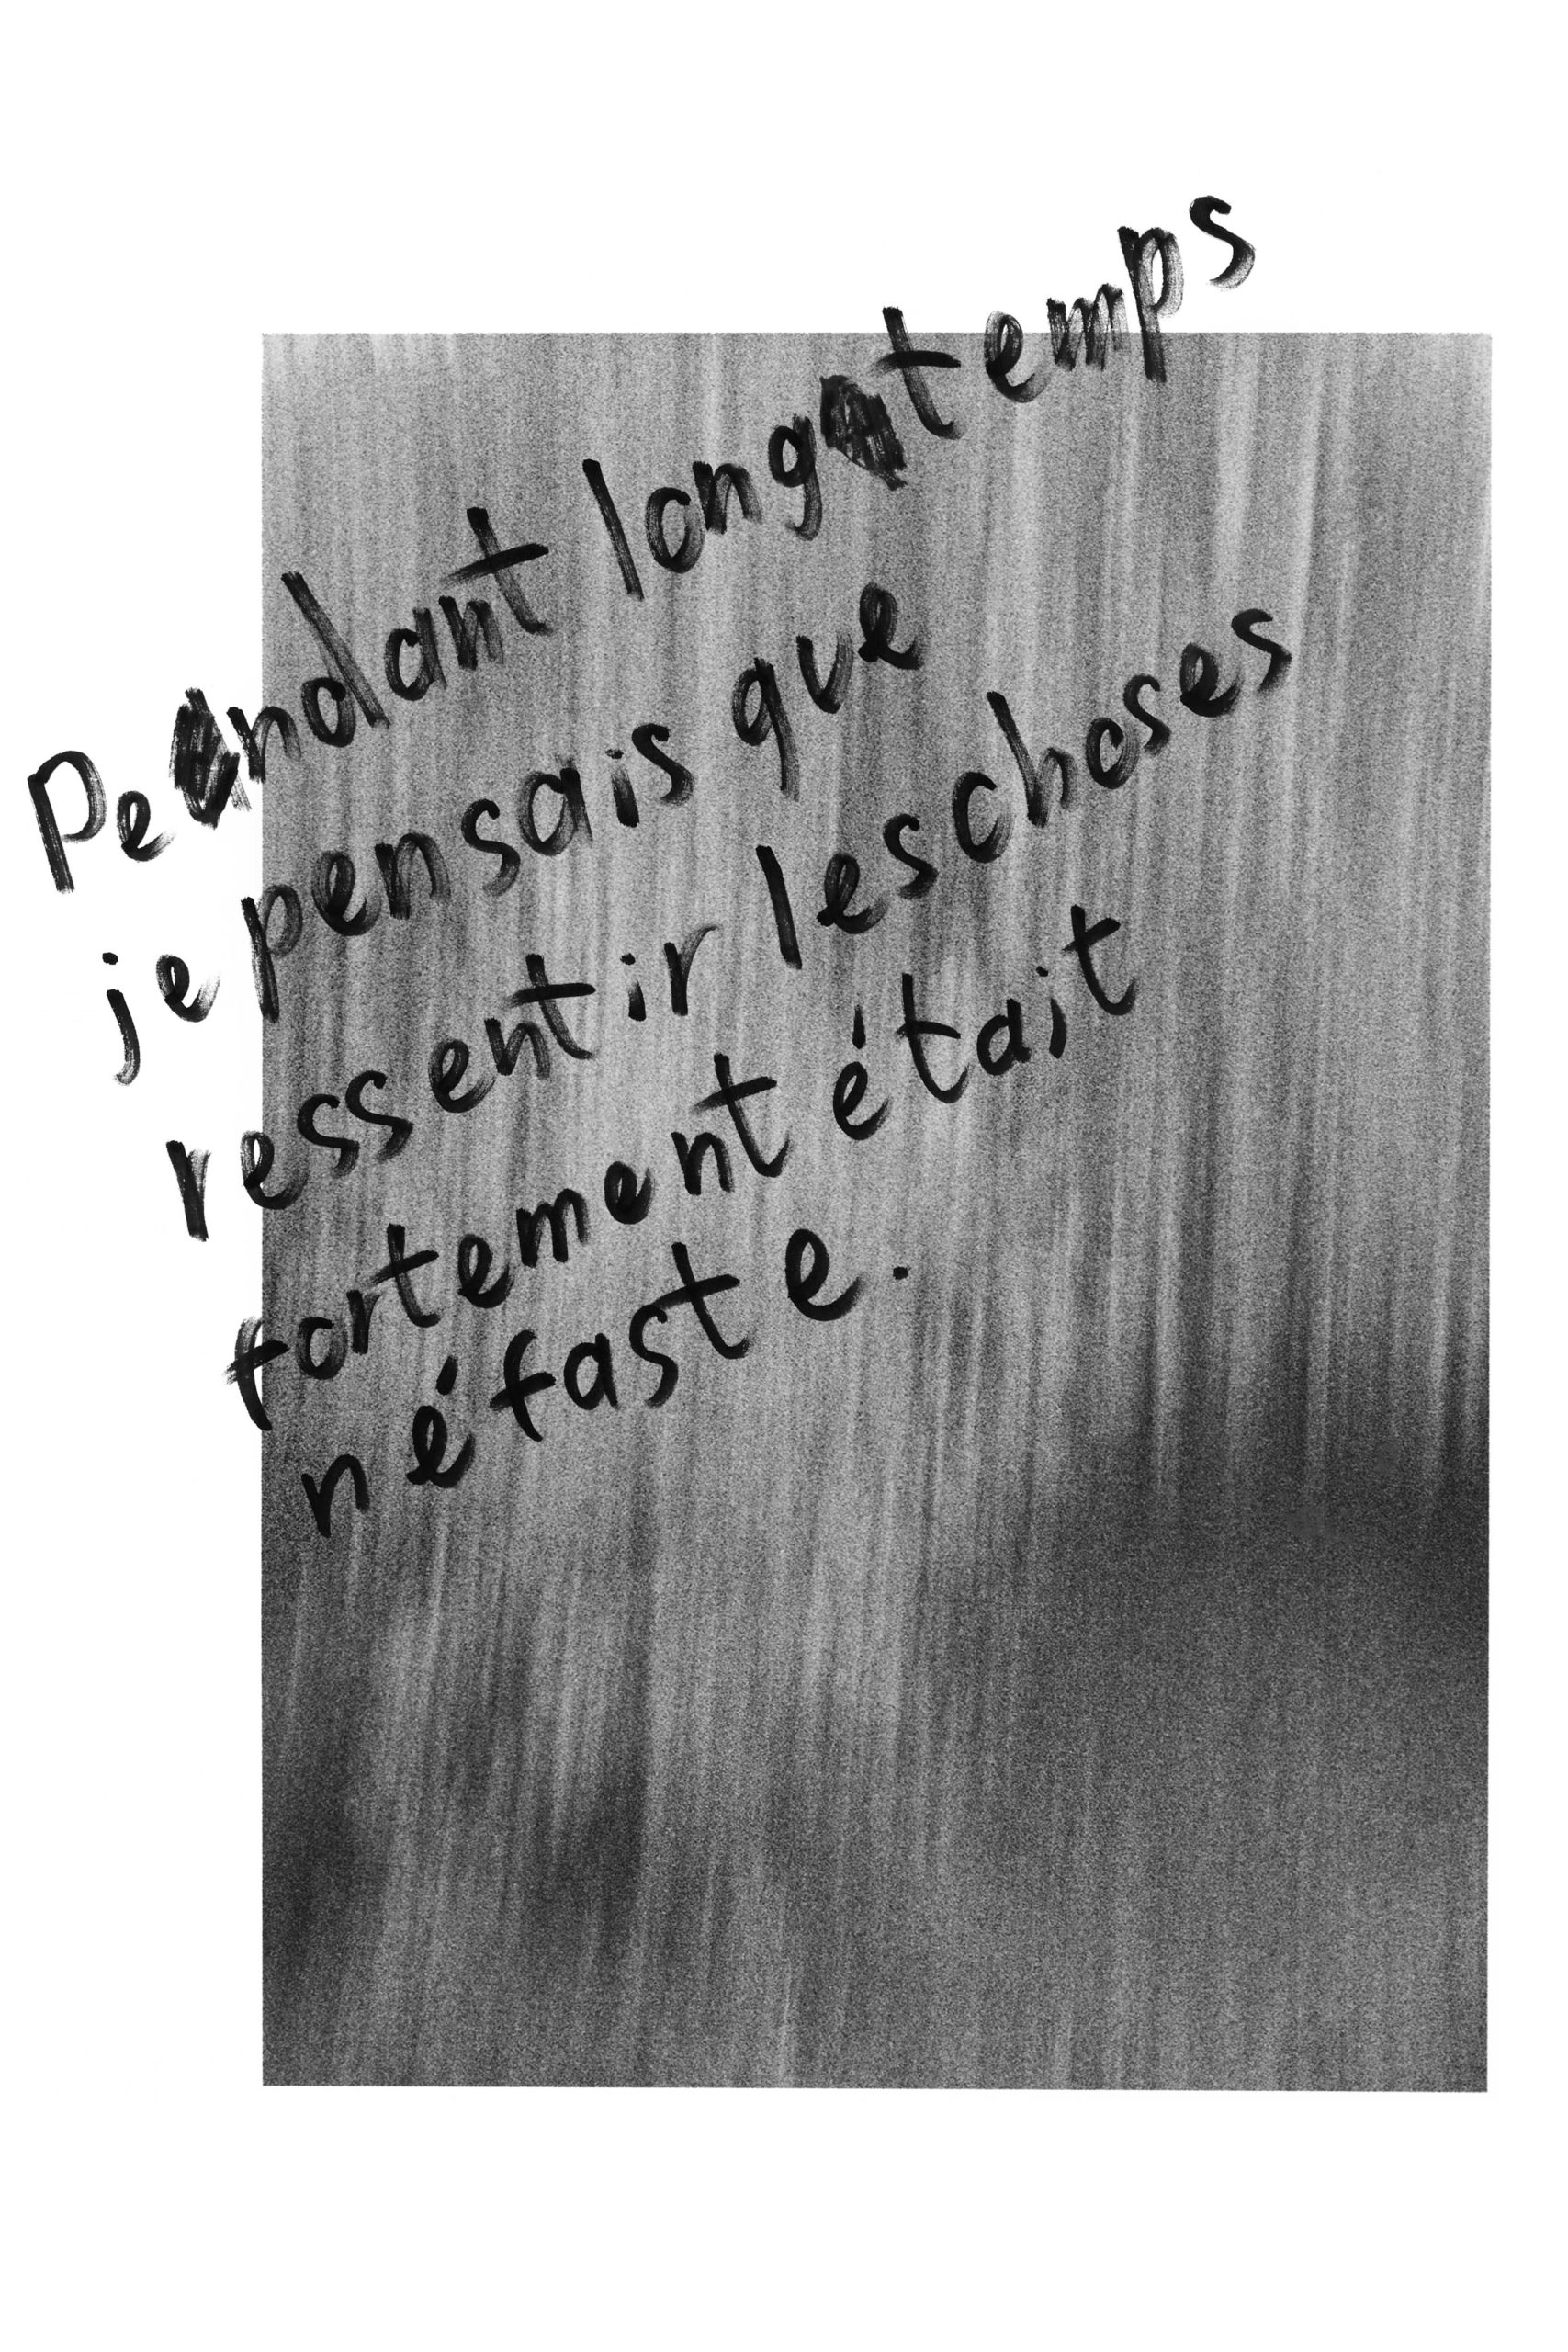 Pendant longtemps
je pensais que
ressentir les choses
fortement était
néfaste.